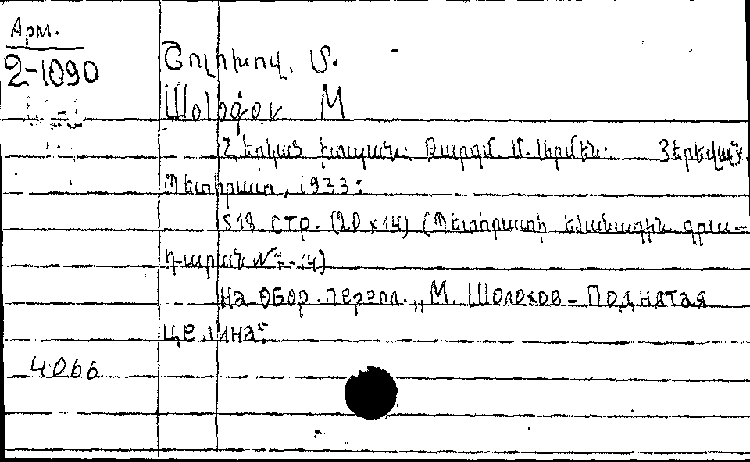 Арм.
2-1090
Շոլոխով, Մ.
Шolofov M
Հերկած խոպան: Թարգմ. Մ. Արմեն: Յերեվան,
Պետհրատ, 1933:
518 стр. (20 x 14) (Պետհրատի եժանագին գրա-
դարան № 7-14)
На обор. перепл. „М. Шолохов - Поднятая
целина"
4066